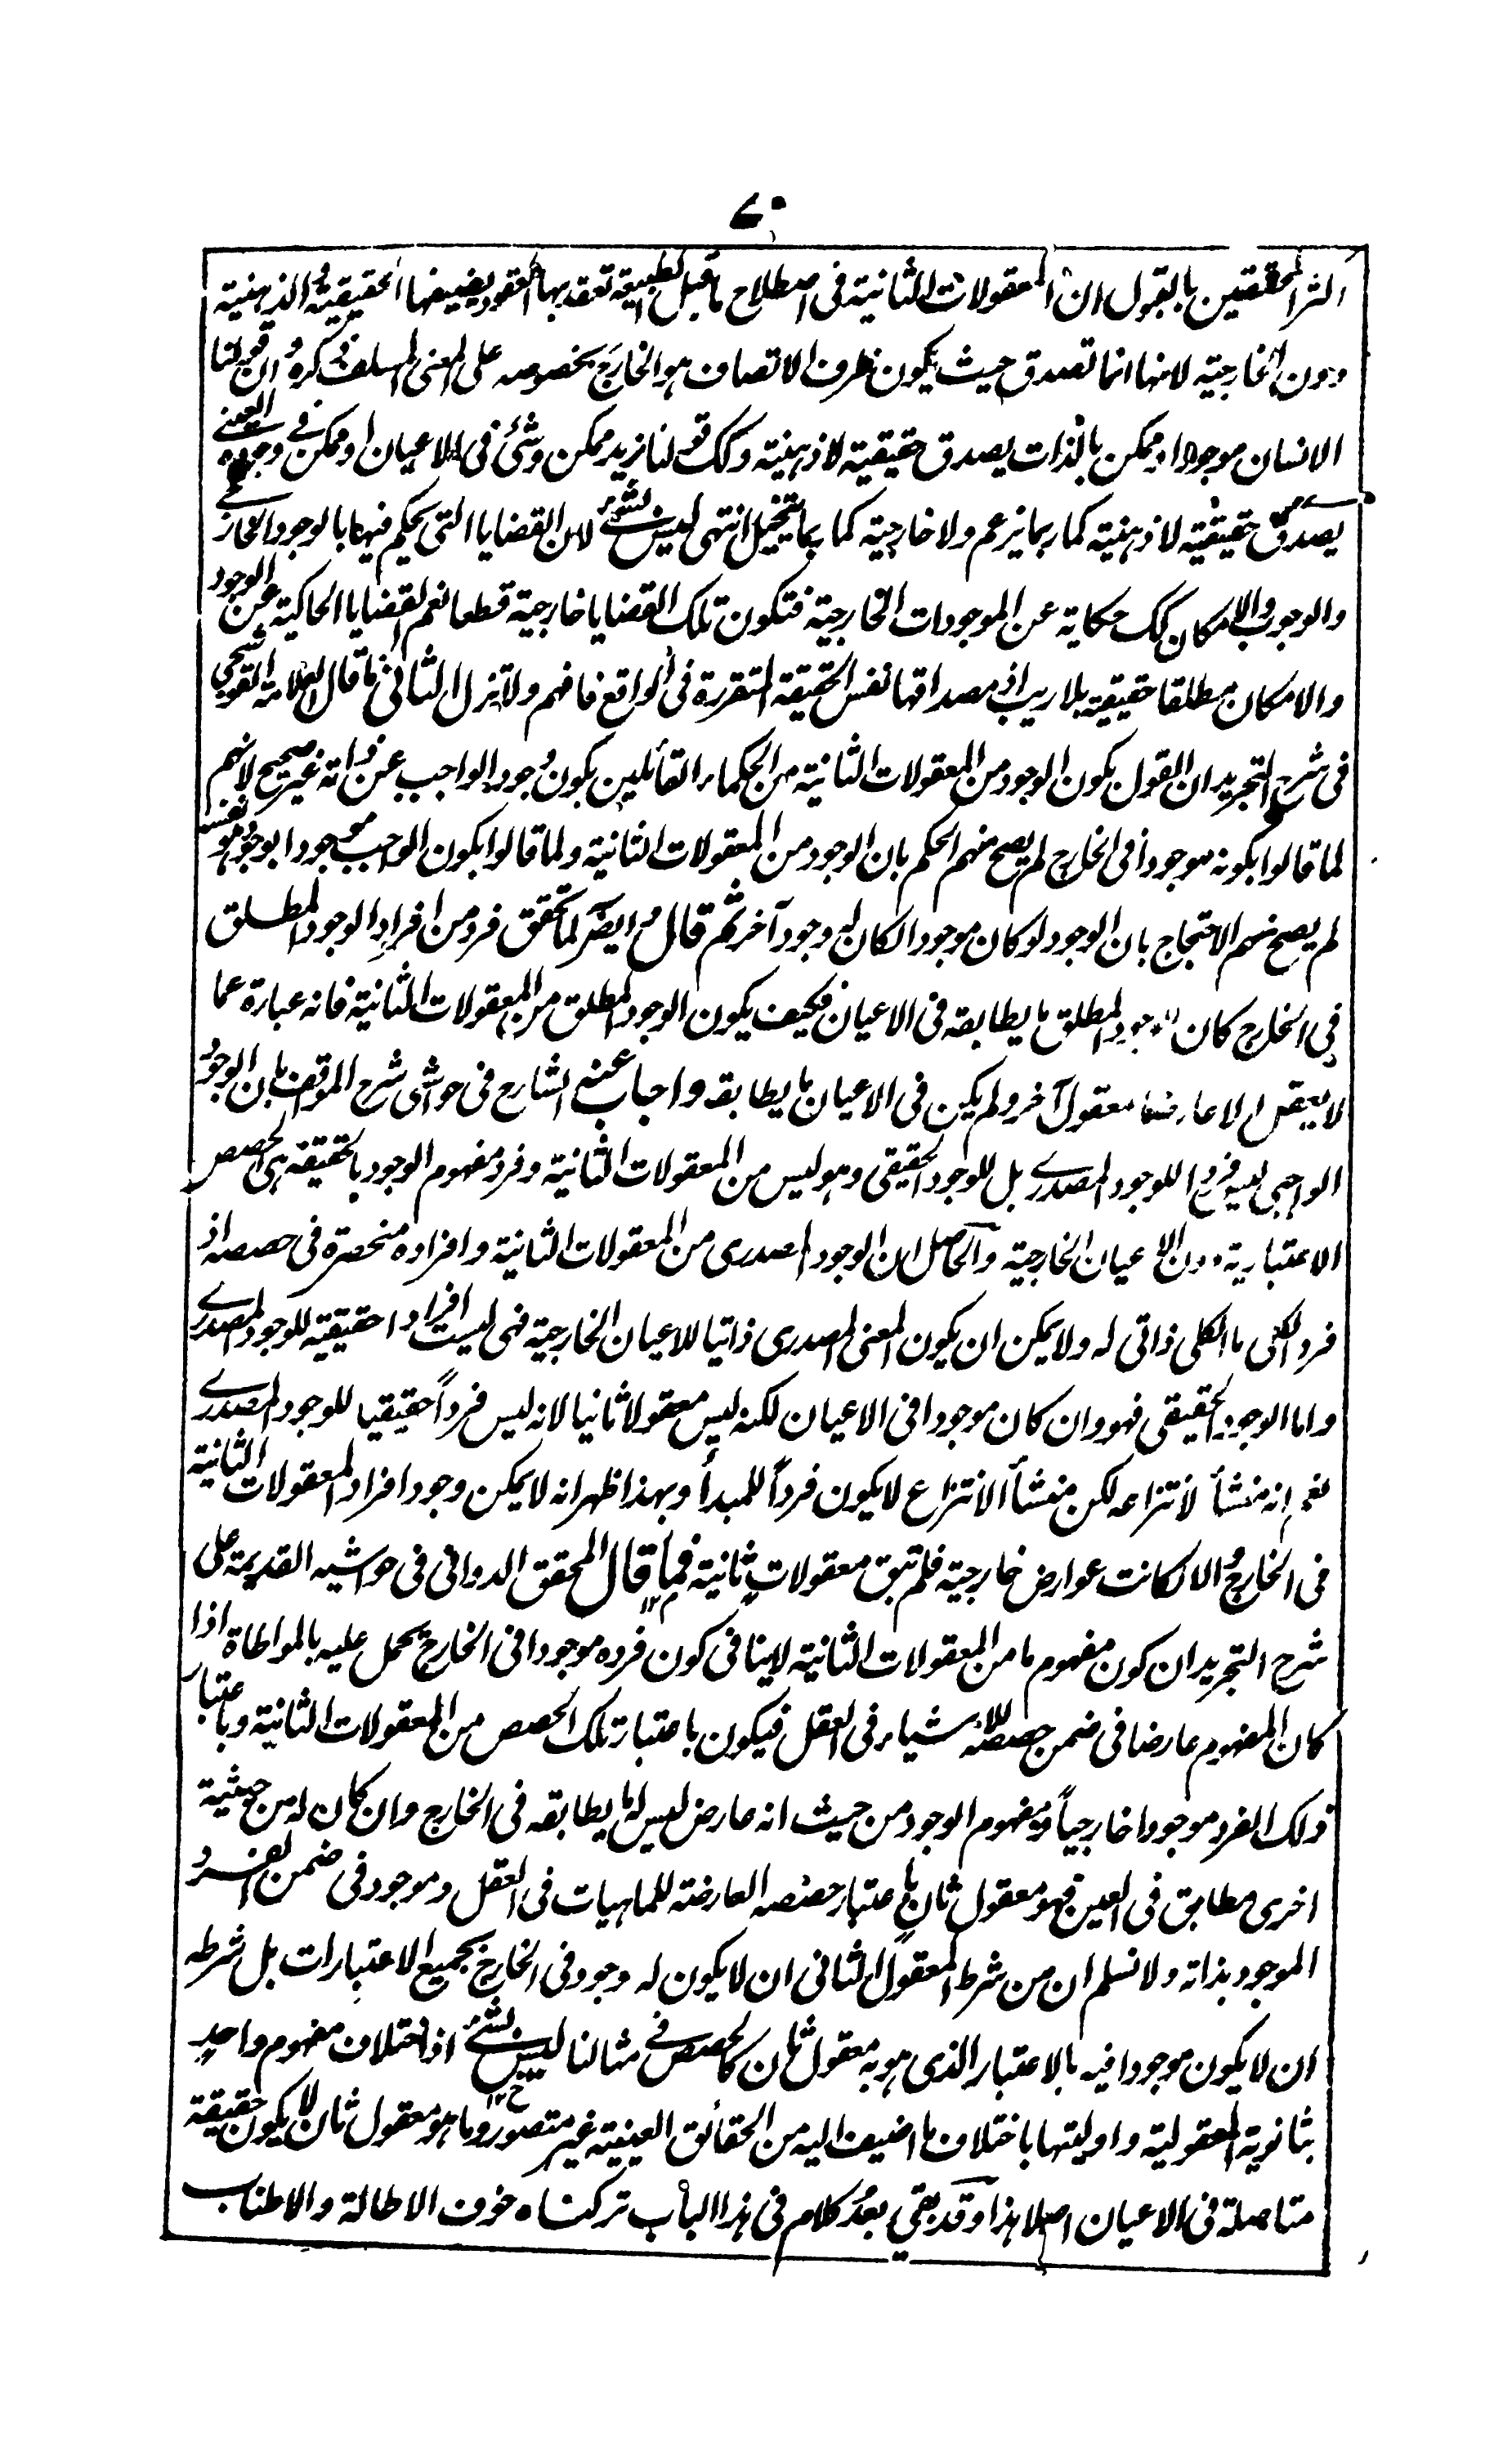 ٧٠
اكثر المحققين بالقول ان المعقولات الثانية فى اصطلاح ما قبل الطبيعة تعقد بها العقود بضيفها الحقيقية والذهنية
دون الخارجية لانها انما تصدق حيث يكون ظرف الاتصاف هو الخارج بخصوصه على المعنى المسلف ذكره وان قولنا
الانسان موجود او ممكن بالذات يصدق حقيقية لا ذهنية وكك قولنا زيد ممكن وشئ فى الاعيان او ممكن فے وجوده العينے
يصدق حقيقية لا ذهنية كما ربما يزعم ولا خارجية كما ربما يتخيل انتهى ليس بشئ لان القضايا التى يحكم فيها بالوجود الخارجے
والوجوب والامكان كك حكاية عن الموجودات الخارجية فتكون تلك القضايا خارجية قطعا نعم القضايا الحاكية عن الوجود
والامكان مطلقا حقيقية بلا ريب اذ مصداقها نفس الحقيقة المتقررة فى الواقع فافهم ولا تزل الثانى ما قال العلامة القوشجى
فى شرح التجريد ان القول بكون الوجود من المعقولات الثانية من الحكماء القائلين بكون وجود الواجب عين ذاته غير صحيح لانهم
لما قالوا بكونه موجودا فى الخارج لم يصح منهم الحكم بان الوجود من المعقولات الثانية ولما قالوا بكون الواجب موجودا بوجود هو نفسه
لم يصح منهم الاحتجاج بان الوجود لو كان موجودا لكان له وجود آخر ثم قال وايضا لما تحقق فرد من افراد الوجود المطلق
فى الخارج كان للوجود المطلق ما يطابقه فى الاعيان فكيف يكون الوجود المطلق من المعقولات الثانية فانه عبارة عما
لا يعقل الا عارضا لمعقول آخر ولم يكن فى الاعيان ما يطابقه واجاب عنہ الشارح فى حواشى شرح المواقف بان الوجود
الواجبى ليس فردا للوجود المصدرے بل للوجود الحقيقى وهو ليس من المعقولات الثانية وفرد مفهوم الوجود بالحقيقة هى الحصص
الاعتبارية دون الاعيان الخارجية والحاصل ان الوجود المصدرى من المعقولات الثانية وافراده منحصرة فى حصصه اذ
فرد الكلى ما الكلى ذاتى له ولا يمكن ان يكون المعنى المصدرى ذاتيا للاعيان الخارجية فهى ليست افرادا حقيقية للوجود المصدرے
واما الوجود الحقيقى فهو وان كان موجودا فى الاعيان لكنه ليس معقولا ثانيا لانه ليس فرداً حقيقيا للوجود المصدرے
نعم انه منشأ لانتزاعه لكن منشأ الانتزاع لا يكون فرداً للمبدأ وبهذا ظهر انه لا يمكن وجود افراد المعقولات الثانية
فى الخارج والا لكانت عوارض خارجية فلم تبق معقولات ثانية فما قال المحقق الدوانى فى حواشيه القديمة على
شرح التجريد ان كون مفهوم ما من المعقولات الثانية لا ينافى كون فرده موجودا فى الخارج يحمل عليه بالمواطاة اذا
كان المفهوم عارضا فى ضمن حصصه للاشياء فى العقل فيكون باعتبار تلك الحصص من المعقولات الثانية وباعتبار
ذلك الفرد موجودا خارجياً ومفهوم الوجود من حيث انه عارض ليس له ما يطابقه فى الخارج وان كان له من حيثية
اخرى مطابق فى العين فهو معقول ثان باعتبار حصصه العارضة للماهيات فى العقل وموجود فى ضمن الفرد
الموجود بذاته ولا نسلم ان من شرط المعقول الثانى ان لا يكون له وجود فى الخارج بجميع الاعتبارات بل شرطه
ان لا يكون موجودا فيه بالاعتبار الذى هو به معقول ثان كالحصص فے مثالنا ليس بشئ اذ اختلاف مفهوم واحد
بثانوية المعقولية واوليتها باختلاف ما اضيف اليه من الحقائق العينية غير متصور وما هو معقول ثان لا يكون حقيقة
متاصلة فى الاعيان اصلا هذا وقد بقى بعد كلام فى هذا الباب تركناه خوف الاطالة والاطناب